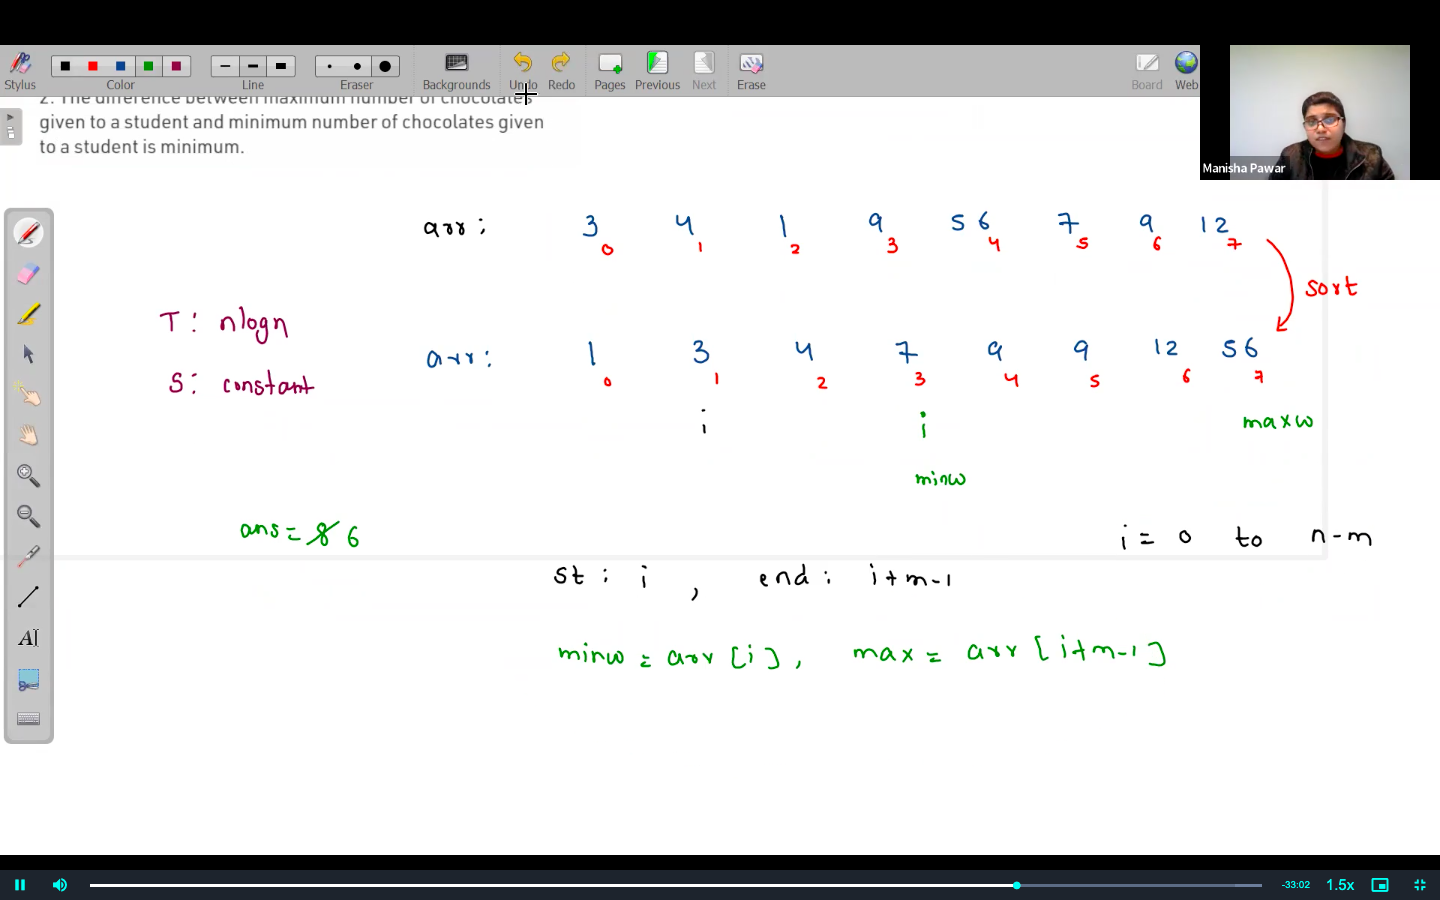 Stylus
Color
Line
Eraser
Backgrounds
Undo
Redo
Pages
Previous
Next
Erase
Board
Web
2. The difference between maximum number of chocolates
given to a student and minimum number of chocolates given
to a student is minimum.
Manisha Pawar
arr : 3 4 1 9 56 7 9 12
0 1 2 3 4 5 6 7
sort
T : nlogn
arr : 1 3 4 7 9 9 12 56
0 1 2 3 4 5 6 7
S : constant
i i maxw
minw
ans = 8 6
i = 0 to n-m
st : i , end : i+m-1
minw = arr [i] , max = arr [i+m-1]
AI
-33:02
1.5x